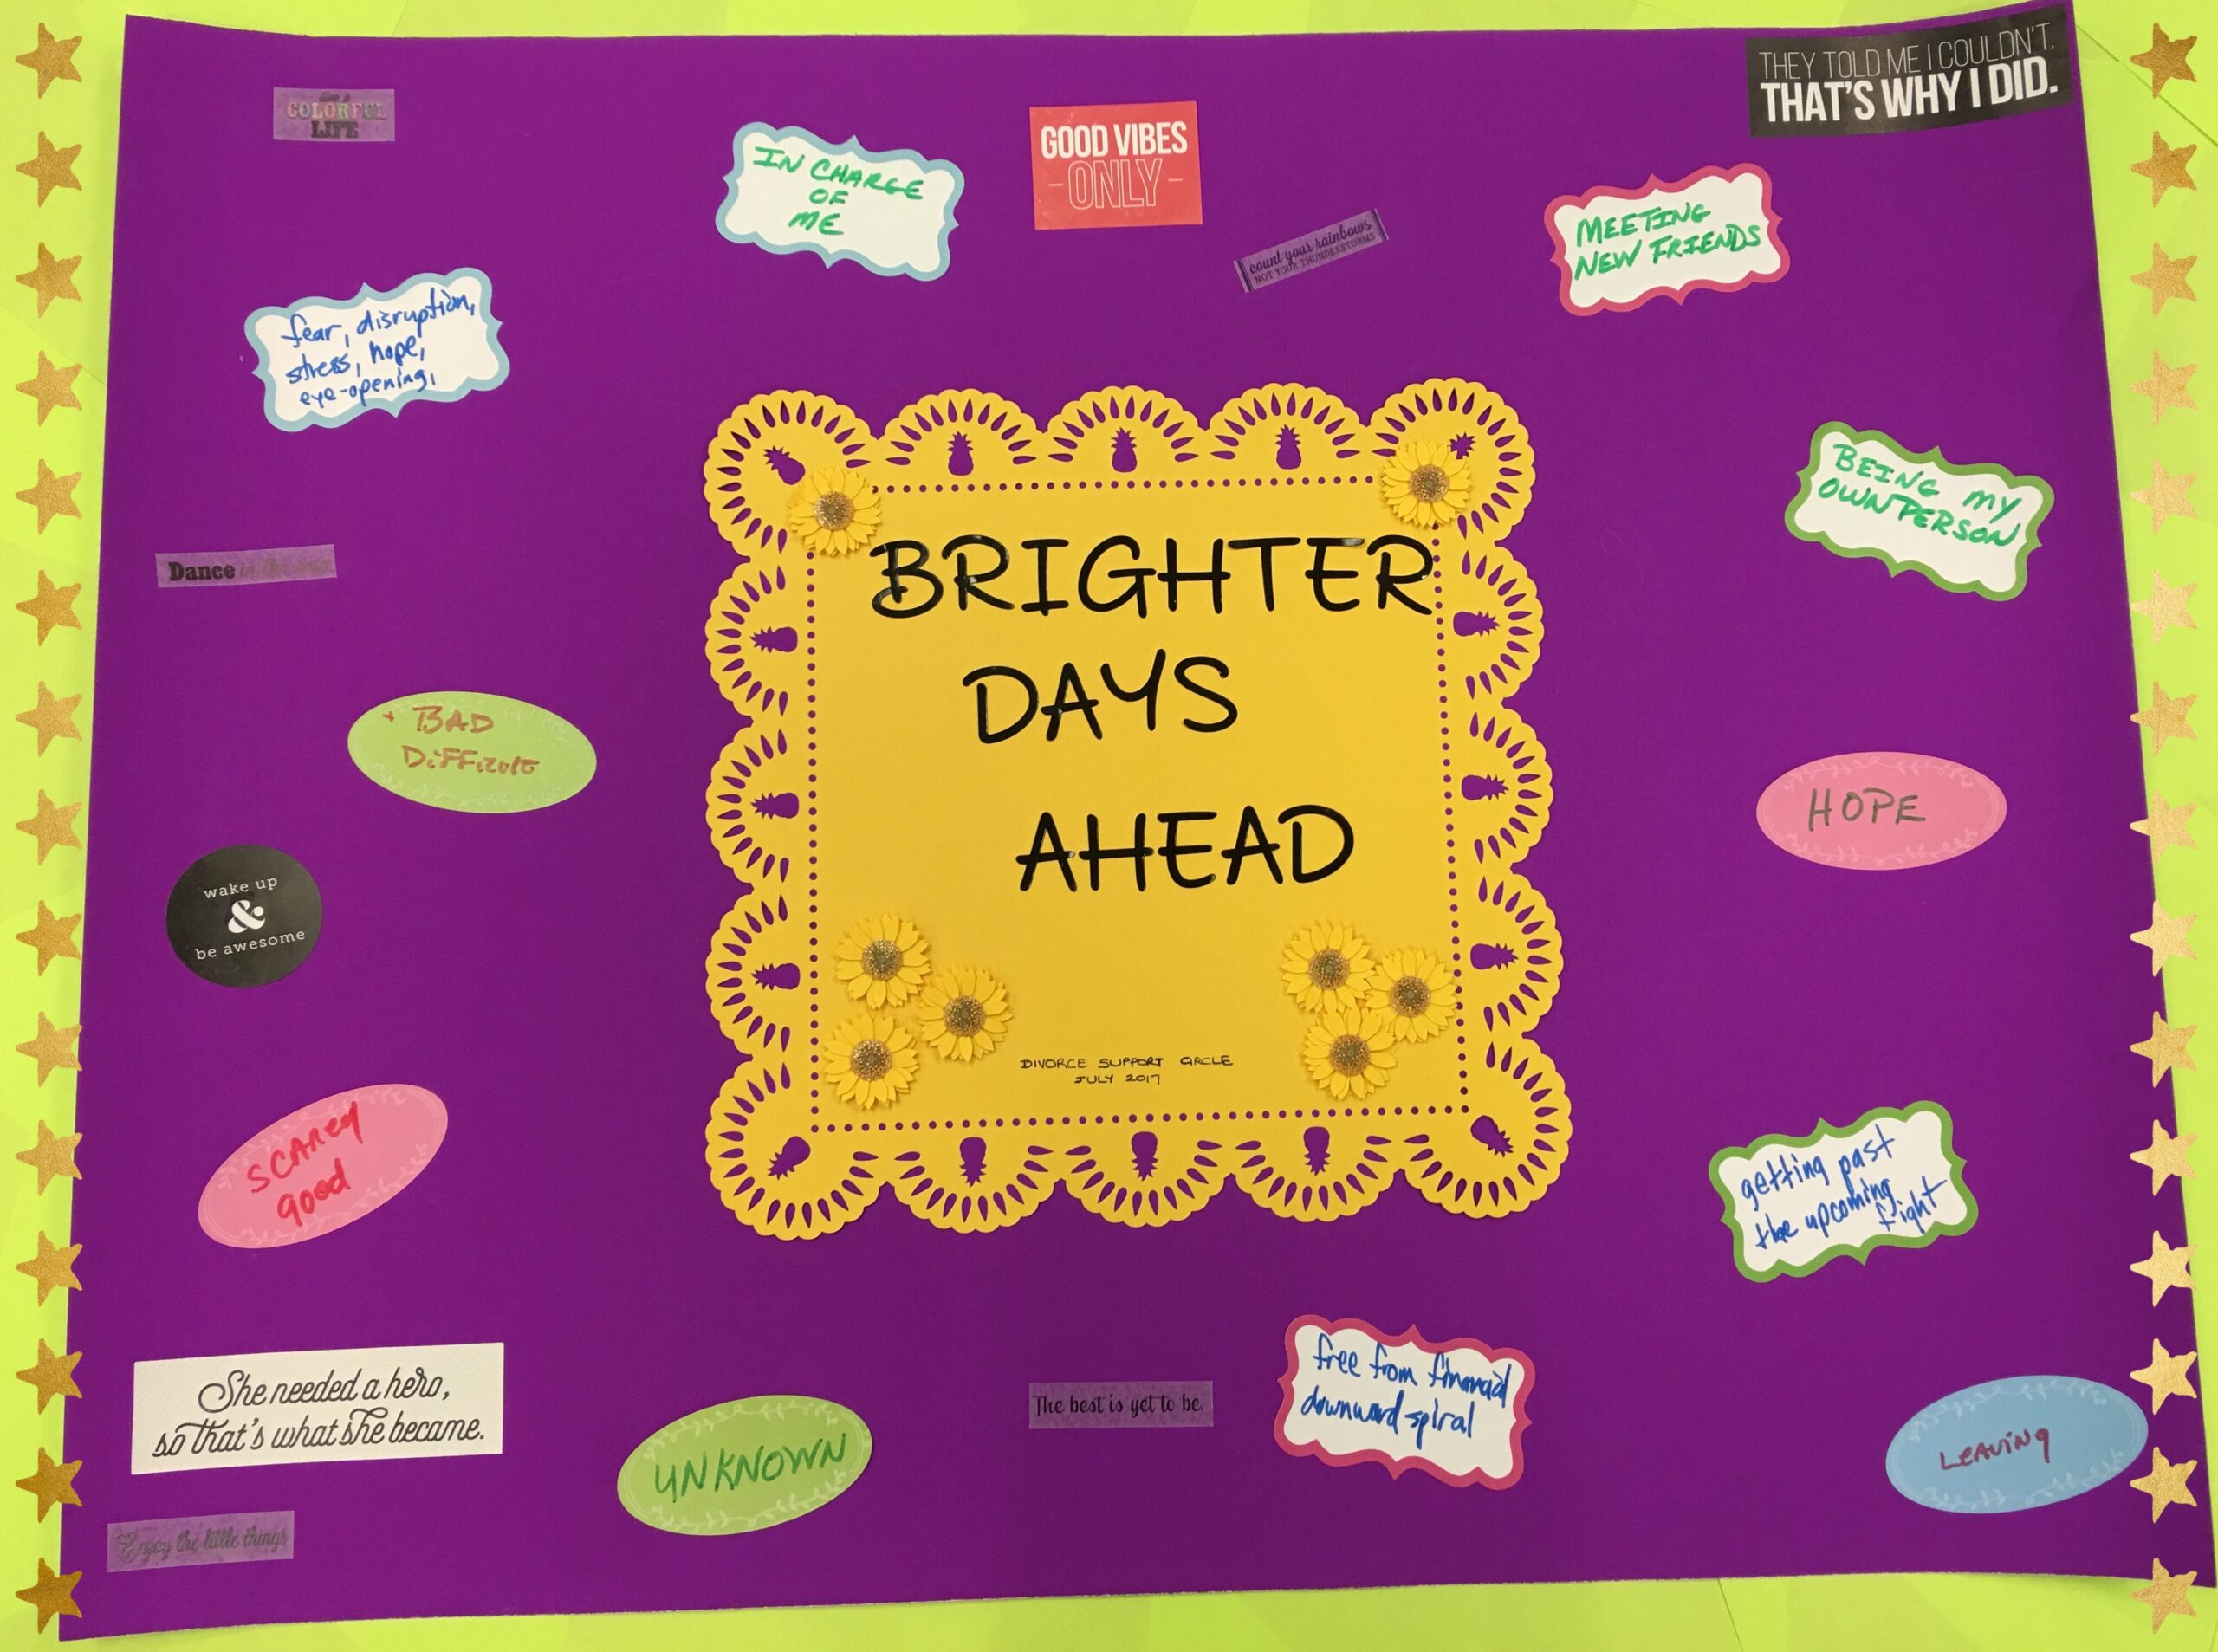 live a
COLORFUL
LIFE
IN CHARGE
OF
ME
GOOD VIBES
-ONLY-
THEY TOLD ME I COULDN'T.
THAT'S WHY I DID.
count your rainbows
NOT YOUR THUNDERSTORMS
MEETING
NEW FRIENDS
fear, disruption,
stress, hope,
eye-opening,
BEING MY
OWN PERSON
Dance in the
BRIGHTER
DAYS
AHEAD
+ BAD
DiFFicult
HOPE
wake up
&
be awesome
DIVORCE SUPPORT CIRCLE
JULY 2017
SCAREy
good
getting past
the upcoming
fight
She needed a hero,
so that's what she became.
The best is yet to be.
free from financial
downward spiral
UNKNOWN
LEAVING
Enjoy the little things